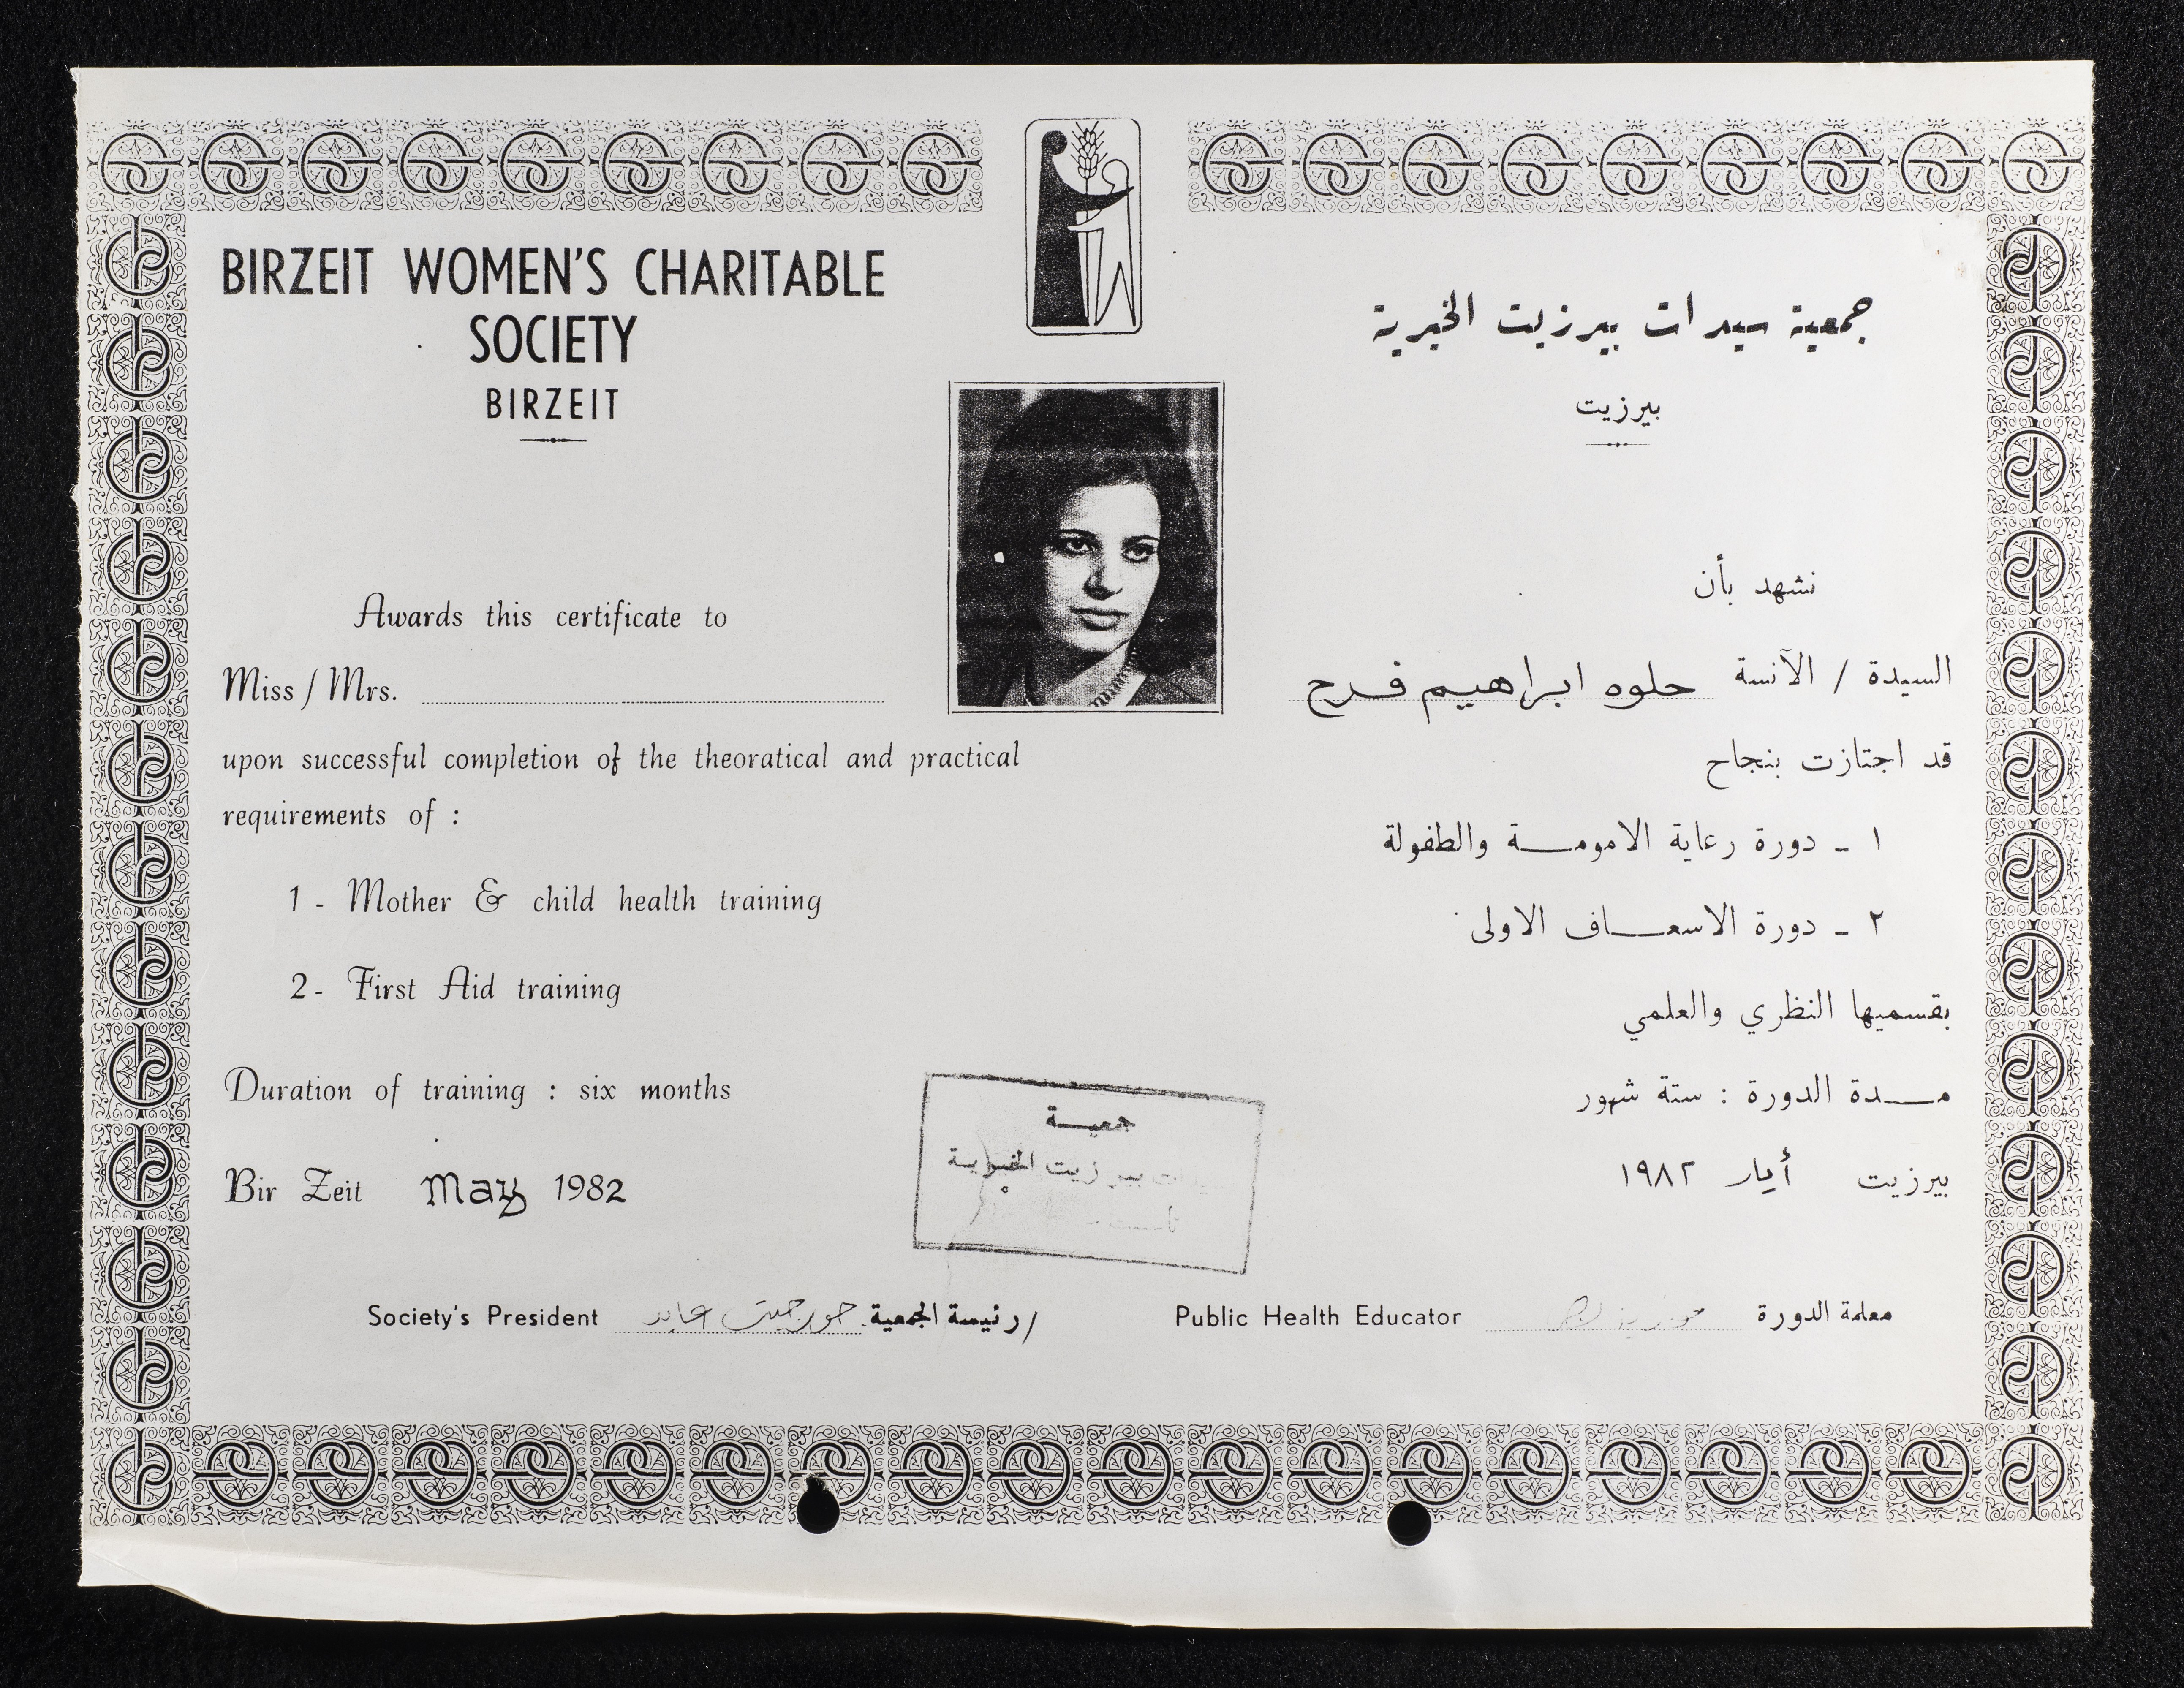 BIRZEIT WOMEN'S CHARITABLE
SOCIETY
BIRZEIT
Awards this certificate to
Miss / Mrs.
upon successful completion of the theoratical and practical
requirements of :
1 - Mother & child health training
2 - First Aid training
Duration of training : six months
Bir Zeit may 1982
جمعية سيدات بيرزيت الخيرية
بيرزيت
نشهد بأن
السيدة / الآنسة حلوه ابراهيم فرح
قد اجتازت بنجاح
١ - دورة رعاية الامومة والطفولة
٢ - دورة الاسعاف الاولى
بقسميها النظري والعلمي
مدة الدورة : ستة شهور
بيرزيت أيار ١٩٨٢
جمعية
بيرزيت الخيرية
Society's President جورجيت عابد رئيسة الجمعية /
Public Health Educator معلمة الدورة